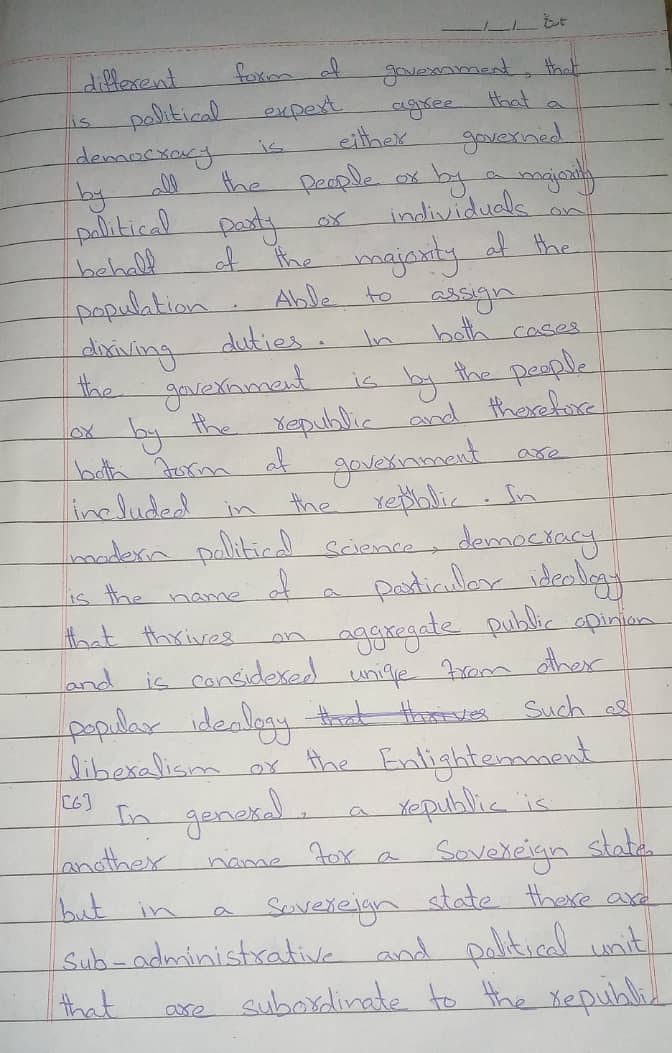 different form of government, that
is political expert agree that a
democracy is either governed
by all the people or by a majority
political party or individuals on
behalf of the majority of the
population. Able to assign
dixiving duties. In both cases
the government is by the people
or by the republic and therefore
both form of government are
included in the republic. In
modern political science, democracy
is the name of a particular ideology
that thrives on aggregate public opinion
and is considered uniqe from other
popular ideology that thrives such as
liberalism or the Enlightenment
[6] In general, a republic is
another name for a Sovereign state,
but in a Sovereign state there are
sub-administrative and political unit
that are subordinate to the republic